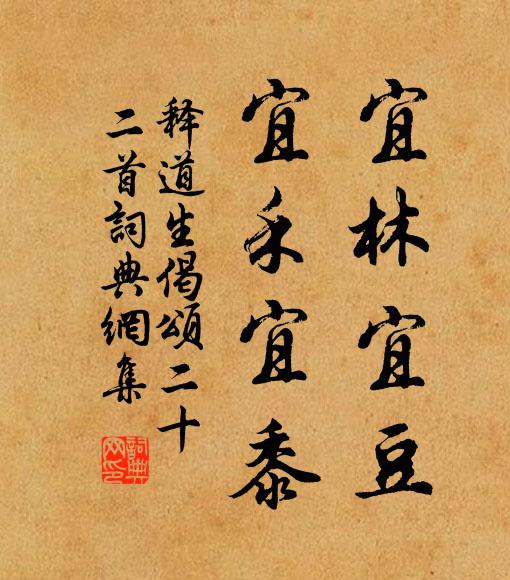 宜林宜豆
宜禾宜黍
释道生偈頌二十
二首詞典網集
詞典
网印